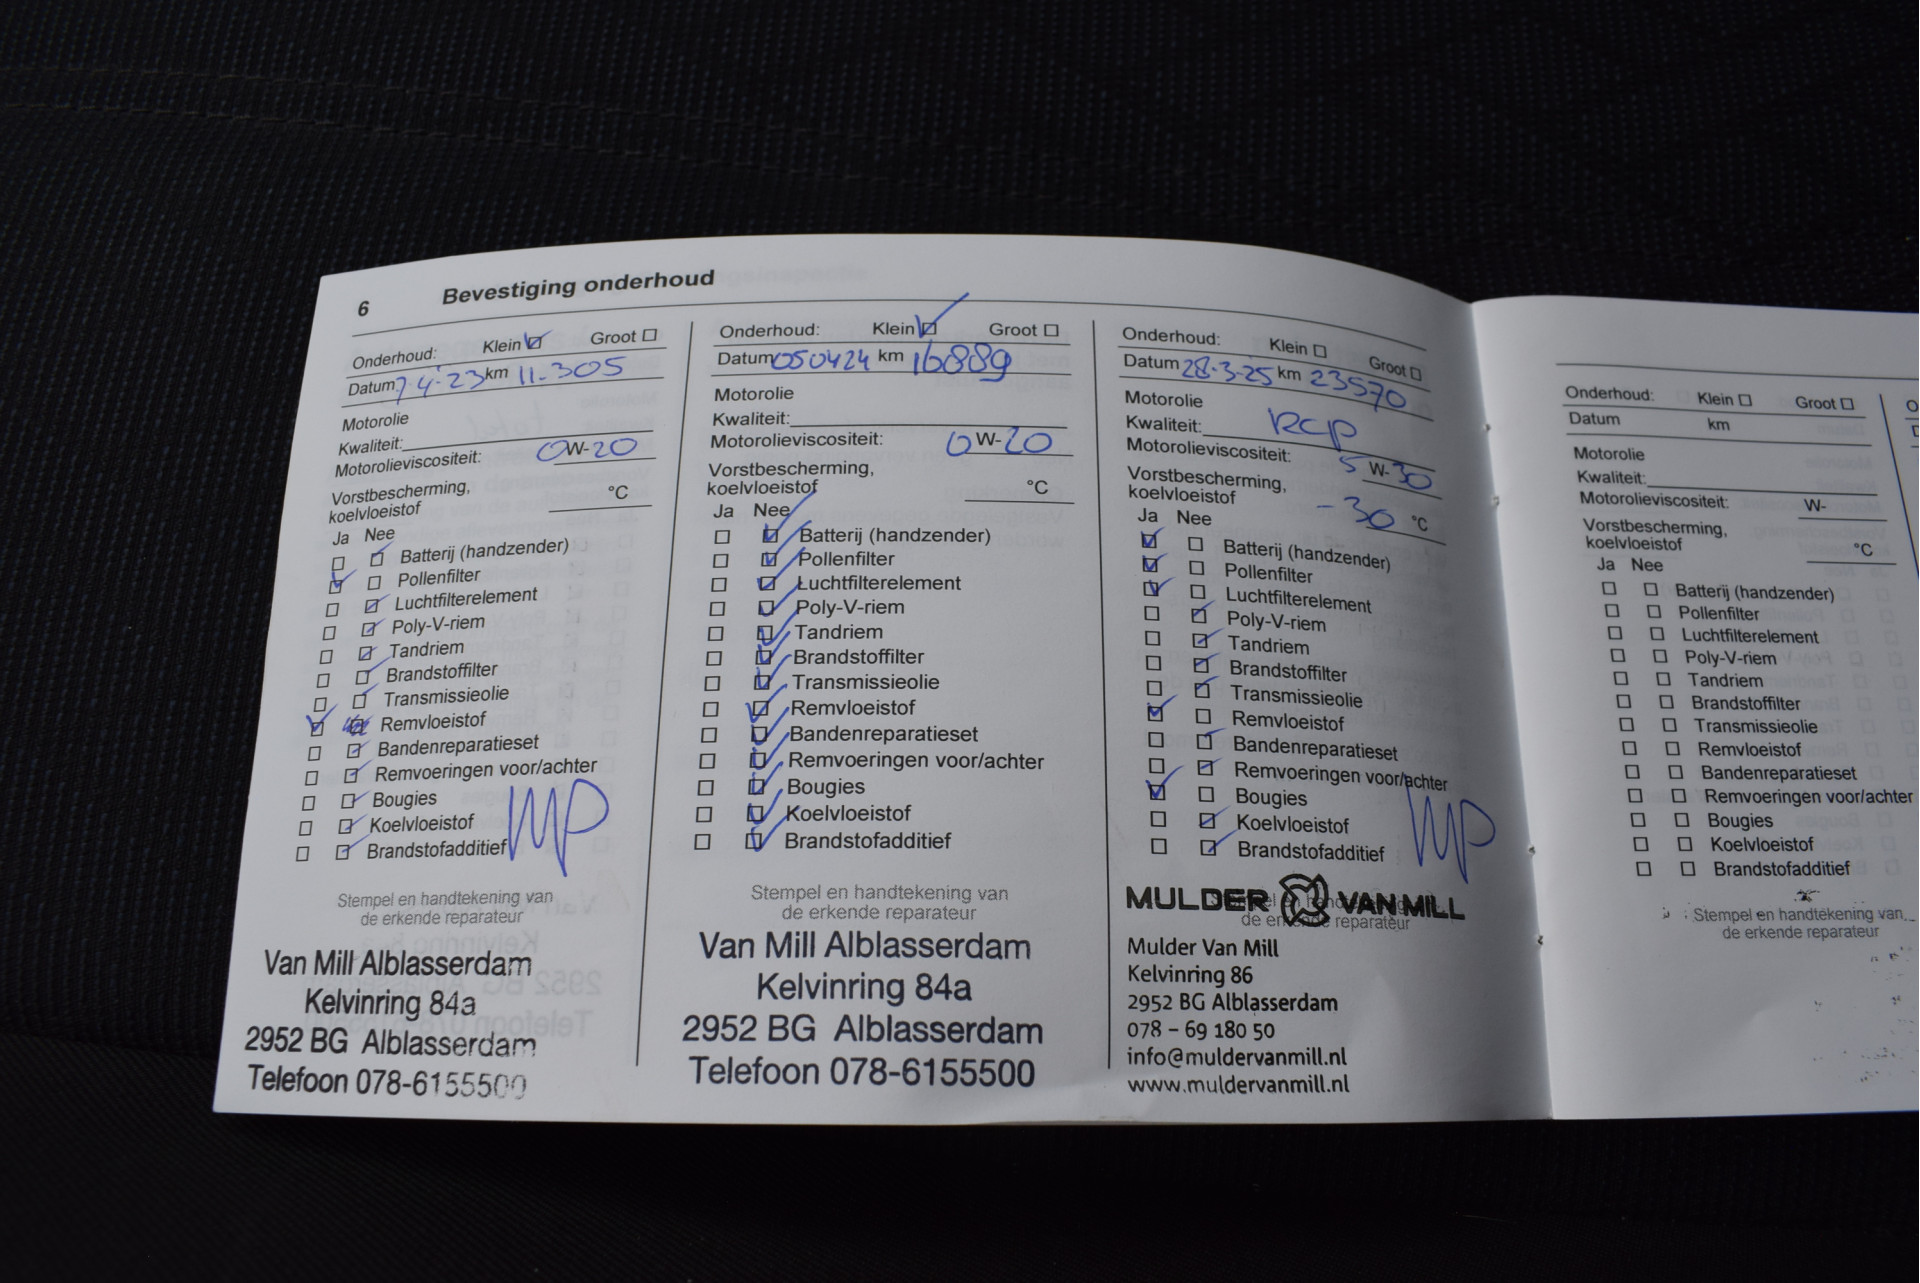 6 Bevestiging onderhoud
Onderhoud: Klein Groot
Datum 7-4-'23 km 11-305
Motorolie
Kwaliteit:
Motorolieviscositeit: 0W-20
Vorstbescherming,
koelvloeistof °C
Ja Nee
Batterij (handzender)
Pollenfilter
Luchtfilterelement
Poly-V-riem
Tandriem
Brandstoffilter
Transmissieolie
Remvloeistof
Bandenreparatieset
Remvoeringen voor/achter
Bougies
Koelvloeistof
Brandstofadditief
Stempel en handtekening van
de erkende reparateur
Van Mill Alblasserdam
Kelvinring 84a
2952 BG Alblasserdam
Telefoon 078-6155500
Onderhoud: Klein Groot
Datum 050424 km 16889
Motorolie
Kwaliteit:
Motorolieviscositeit: 0W-20
Vorstbescherming,
koelvloeistof °C
Ja Nee
Batterij (handzender)
Pollenfilter
Luchtfilterelement
Poly-V-riem
Tandriem
Brandstoffilter
Transmissieolie
Remvloeistof
Bandenreparatieset
Remvoeringen voor/achter
Bougies
Koelvloeistof
Brandstofadditief
Stempel en handtekening van
de erkende reparateur
Van Mill Alblasserdam
Kelvinring 84a
2952 BG Alblasserdam
Telefoon 078-6155500
Onderhoud: Klein Groot
Datum 28-3-25 km 23570
Motorolie
Kwaliteit: RCP
Motorolieviscositeit: 5W-30
Vorstbescherming,
koelvloeistof -30 °C
Ja Nee
Batterij (handzender)
Pollenfilter
Luchtfilterelement
Poly-V-riem
Tandriem
Brandstoffilter
Transmissieolie
Remvloeistof
Bandenreparatieset
Remvoeringen voor/achter
Bougies
Koelvloeistof
Brandstofadditief
Stempel en handtekening van
de erkende reparateur
MULDER VAN MILL
Mulder Van Mill
Kelvinring 86
2952 BG Alblasserdam
078 - 69 180 50
info@muldervanmill.nl
www.muldervanmill.nl
Onderhoud: Klein Groot
Datum km
Motorolie
Kwaliteit:
Motorolieviscositeit: W-
Vorstbescherming,
koelvloeistof °C
Ja Nee
Batterij (handzender)
Pollenfilter
Luchtfilterelement
Poly-V-riem
Tandriem
Brandstoffilter
Transmissieolie
Remvloeistof
Bandenreparatieset
Remvoeringen voor/achter
Bougies
Koelvloeistof
Brandstofadditief
Stempel en handtekening van
de erkende reparateur